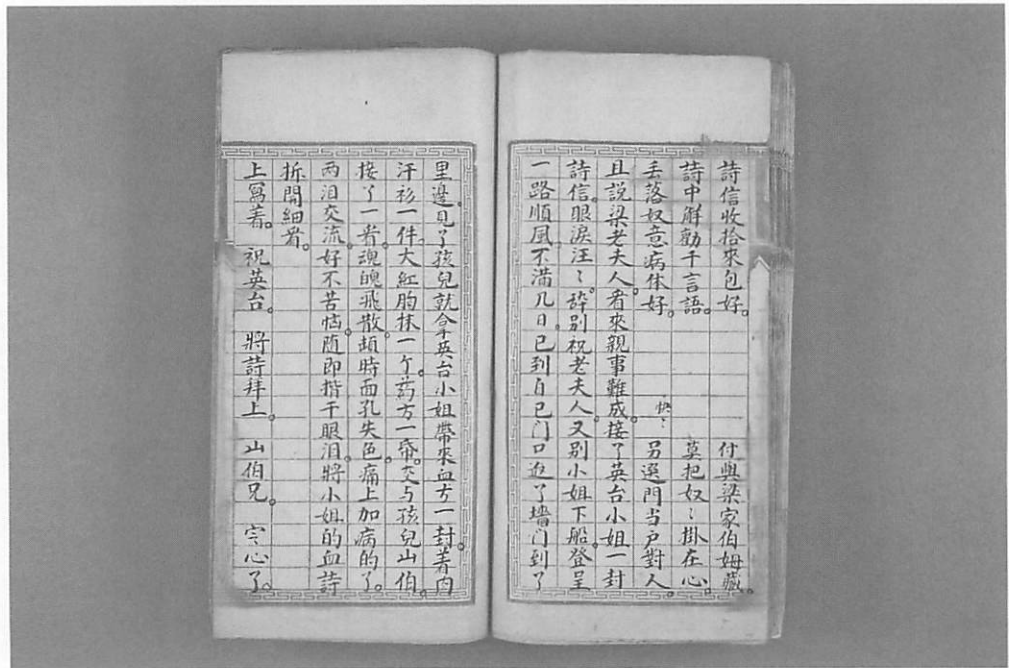 詩信收拾來包好。 付與梁家伯姆藏。
詩中解勸千言語。 莫把奴〻掛在心。
丢落奴意病体好。 快〻另選門当户對人。
且說梁老夫人。看來親事難成。接了英台小姐一封
詩信。眼淚汪〻。辞别祝老夫人。又别小姐下船。登呈
一路順風。不满几日。已到自已门口進了墙门到了
里邊。見了孩兒就拿英台小姐帶來血方一封。着肉
汗衫一件。大紅胸抹一个。药方一帋。交与孩兒山伯。
接了一看。魂魄飛散。頡時面孔失色。痛上加病的了。
两泪交流。好不苦恼。随即揩干眼泪。將小姐的血詩
拆開細看。
上寫着。 祝英台。 將詩拜上。 山伯兄。 宽心了。